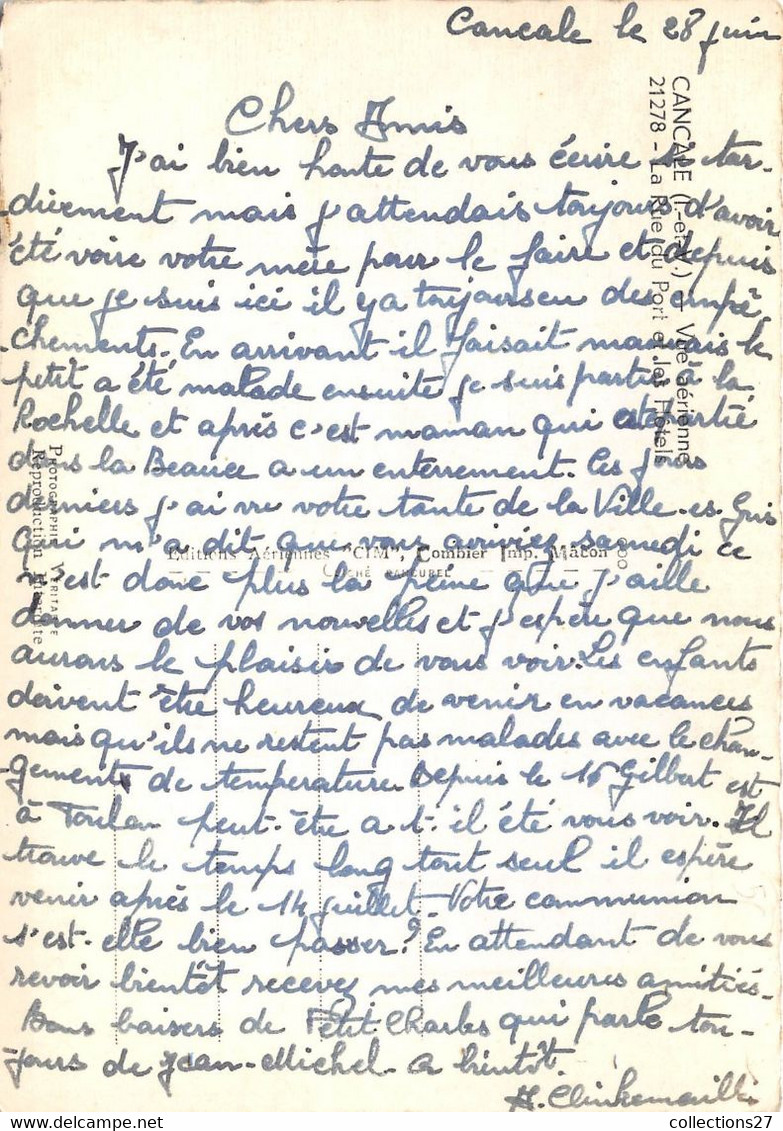 Cancale le 28 juin
Chers Amis
J'ai bien honte de vous écrire si tar-
divement mais j'attendais toujours d'avoir
été voire votre mère pour le faire et depuis
que je suis ici il y a toujours eu des empê-
chements. En arrivant il faisait mauvais le
petit a été malade ensuite je suis partie à la
Rochelle et après c'est maman qui est partie
dans la Beauce a un enterrement. Ces jours
derniers j'ai vu votre tante de la Ville-es-Gris
qui m'a dit que vous arriviez samedi ce
n'est donc plus la peine que j'aille
donner de vos nouvelles et j'espère que nous
aurons le plaisir de vous voir. Les enfants
doivent être heureux de venir en vacances
mais qu'ils ne restent pas malades avec le chan-
gements de temperature. Depuis le 16 Gilbert est
à Toulon peut-être a-t-il été vous voir. Il
trouve le temps long tout seul il espère
venir après le 14 juillet. Votre communion
s'est-elle bien passer? En attendant de vous
revoir bientôt recevez mes meilleures amitiés.
Bons baisers de Petit Charles qui parle tou-
jours de Jean-Michel. a bientôt.
CANCALE (I.-et-V.) - Vue aérienne
21278 - La Rue du Port et les Hôtels
PHOTOGRAPHIE VÉRITABLE
Reproduction Interdite
Editions Aériennes "CIM", Combier Imp. Mâcon
CLICHÉ RANCUREL
collections27